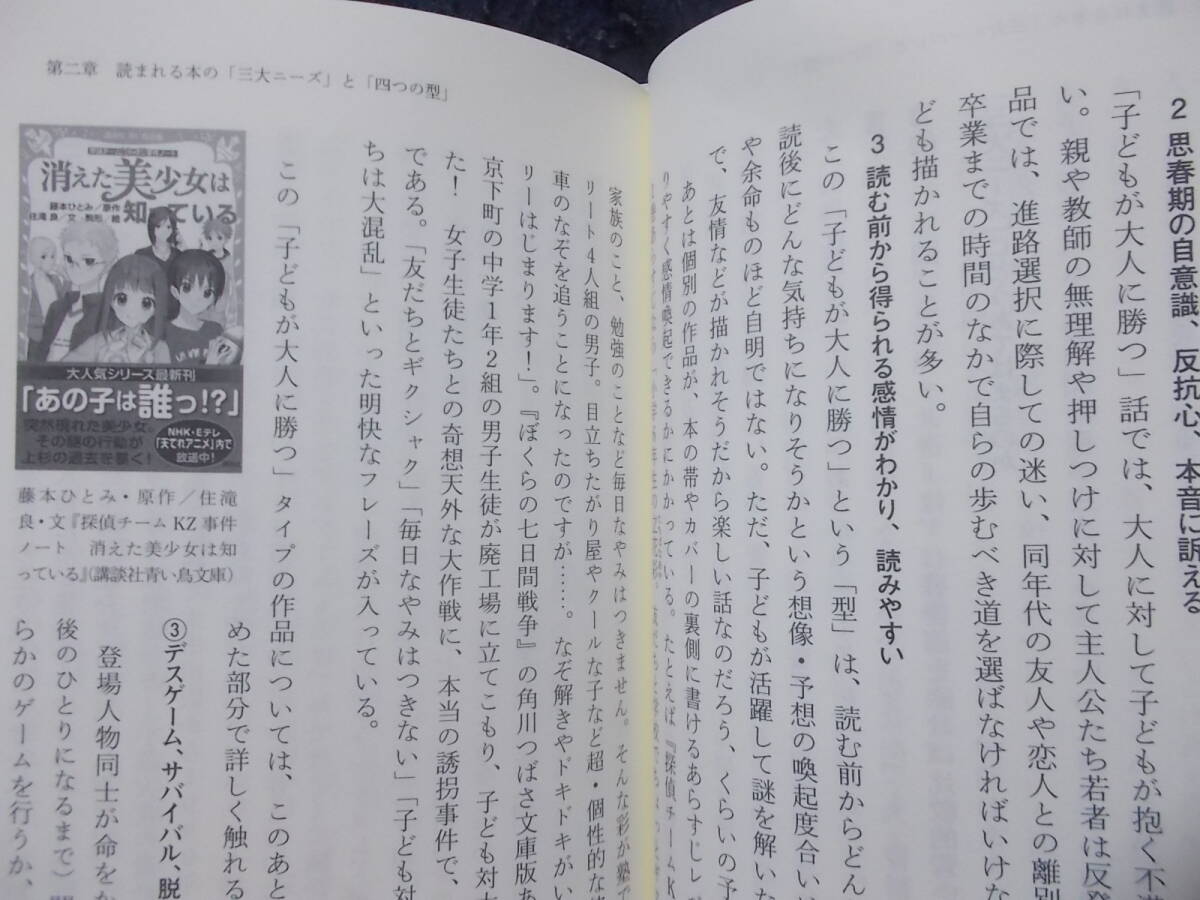 2 思春期の自意識、反抗心、本音に訴える
「子どもが大人に勝つ」話では、大人に対して子どもが抱く不満
い。親や教師の無理解や押しつけに対して主人公たち若者は反発
品では、進路選択に際しての迷い、同年代の友人や恋人との離別
卒業までの時間のなかで自らの歩むべき道を選ばなければいけな
ども描かれることが多い。
3 読む前から得られる感情がわかり、読みやすい
この「子どもが大人に勝つ」という「型」は、読む前からどん
読後にどんな気持ちになりそうかという想像・予想の喚起度合い
や余命ものほど自明ではない。ただ、子どもが活躍して謎を解いた
で、友情などが描かれそうだから楽しい話なのだろう、くらいの予
あとは個別の作品が、本の帯やカバーの裏側に書けるあらすじレ
りやすく感情喚起できるかにかかっている。たとえば『探偵チームK
第二章 読まれる本の「三大ニーズ」と「四つの型」
家族のこと、勉強のことなど毎日なやみはつきません。そんな彩が塾で
リート4人組の男子。目立ちたがり屋やクールな子など超・個性的な
車のなぞを追うことになったのですが……。なぞ解きやドキドキがい
リーはじまります!」。『ぼくらの七日間戦争』の角川つばさ文庫版あ
京下町の中学1年2組の男子生徒が廃工場に立てこもり、子ども対大
た! 女子生徒たちとの奇想天外な大作戦に、本当の誘拐事件で、
である。「友だちとギクシャク」「毎日なやみはつきない」「子ども対
ちは大混乱」といった明快なフレーズが入っている。
この「子どもが大人に勝つ」タイプの作品については、このあと
めた部分で詳しく触れる
③デスゲーム、サバイバル、脱
登場人物同士が命をな
後のひとりになるまで)
らかのゲームを行うか、
消えた美少女は
知っている
藤本ひとみ/原作
住滝 良/文 駒形/絵
大人気シリーズ最新刊
「あの子は誰っ!?」
突然現れた美少女。
その謎の行動が
上杉の過去を暴く!
NHK・Eテレ
「天てれアニメ」内で
放送中!
藤本ひとみ・原作/住滝
良・文『探偵チームKZ事件
ノート 消えた美少女は知
っている』(講談社青い鳥文庫)